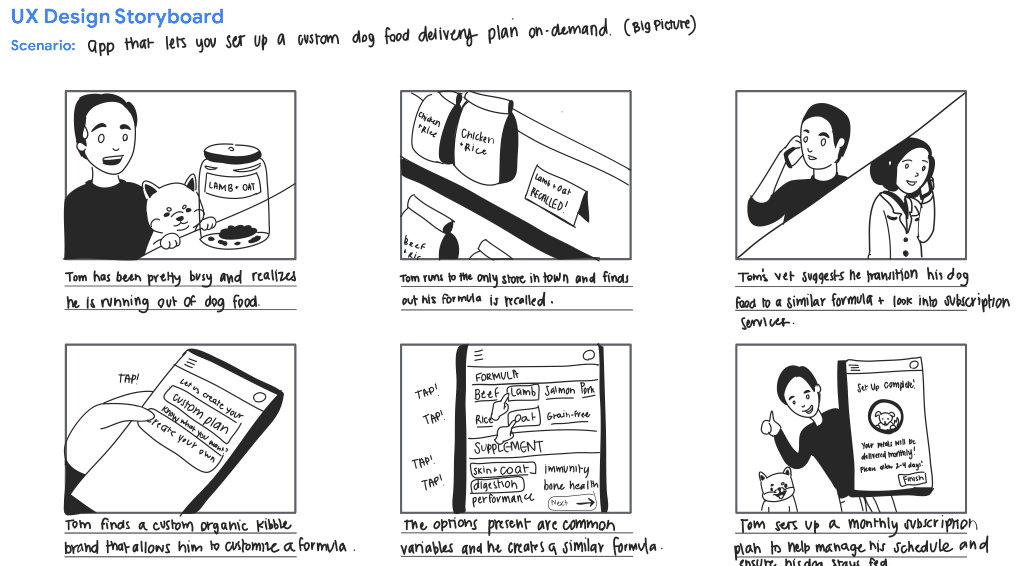 UX Design Storyboard
Scenario: app that lets you set up a custom dog food delivery plan on-demand. (Big Picture)
LAMB + OAT
Tom has been pretty busy and realizes
he is running out of dog food.
Chicken
+ Rice
Chicken
+ Rice
Lamb + Oat
RECALLED!
Beef
+ Ric
Tom runs to the only store in town and finds
out his formula is recalled.
Tom's vet suggests he transition his dog
food to a similar formula + look into subscription
services.
TAP!
Let us create your
custom plan
Know what you want?
Create your own
Tom finds a custom organic kibble
brand that allows him to customize a formula.
TAP!
TAP!
TAP!
TAP!
FORMULA
Beef Lamb Salmon Pork
Rice Oat Grain-free
SUPPLEMENT
skin + coat immunity
digestion bone health
performance
Next
The options present are common
variables and he creates a similar formula.
Set Up Complete!
Your meals will be
delivered monthly!
Please allow 2-4 days!
Finish
Tom sets up a monthly subscription
plan to help manage his schedule and
ensure his dog stays fed